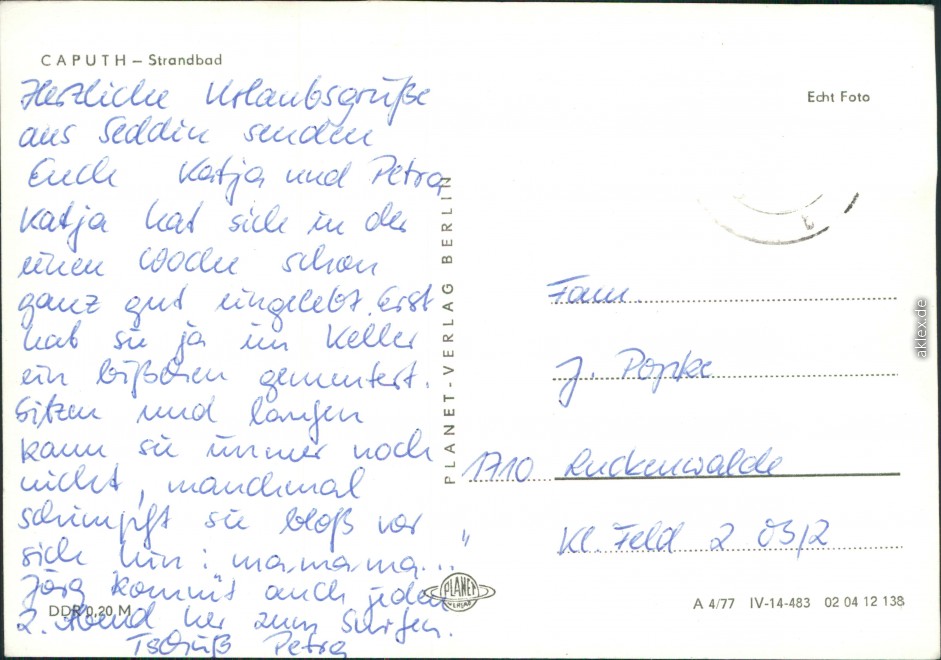 CAPUTH – Strandbad
Herzliche Urlaubsgrüße
aus Seddin senden
Euch Katja und Petra
Katja hat sich in der
einen Woche schon
ganz gut eingelebt. Erst
hat sie ja im Keller
ein bißchen gemeutert.
Sitzen und langen
kann sie immer noch
nicht, manchmal
schimpft sie bloß vor
sich hin: ma.ma.ma... "
Jörg kommt auch jeden
2. Abend her zum Surfen.
Tschüß Petra
DDR 0,20 M
PLANET-VERLAG BERLIN
PLANET
VERLAG
Echt Foto
Fam.
J. Popke
1710 Luckenwalde
Kl. Feld 2 03/2
A 4/77 IV-14-483 02 04 12 138
aklex.de